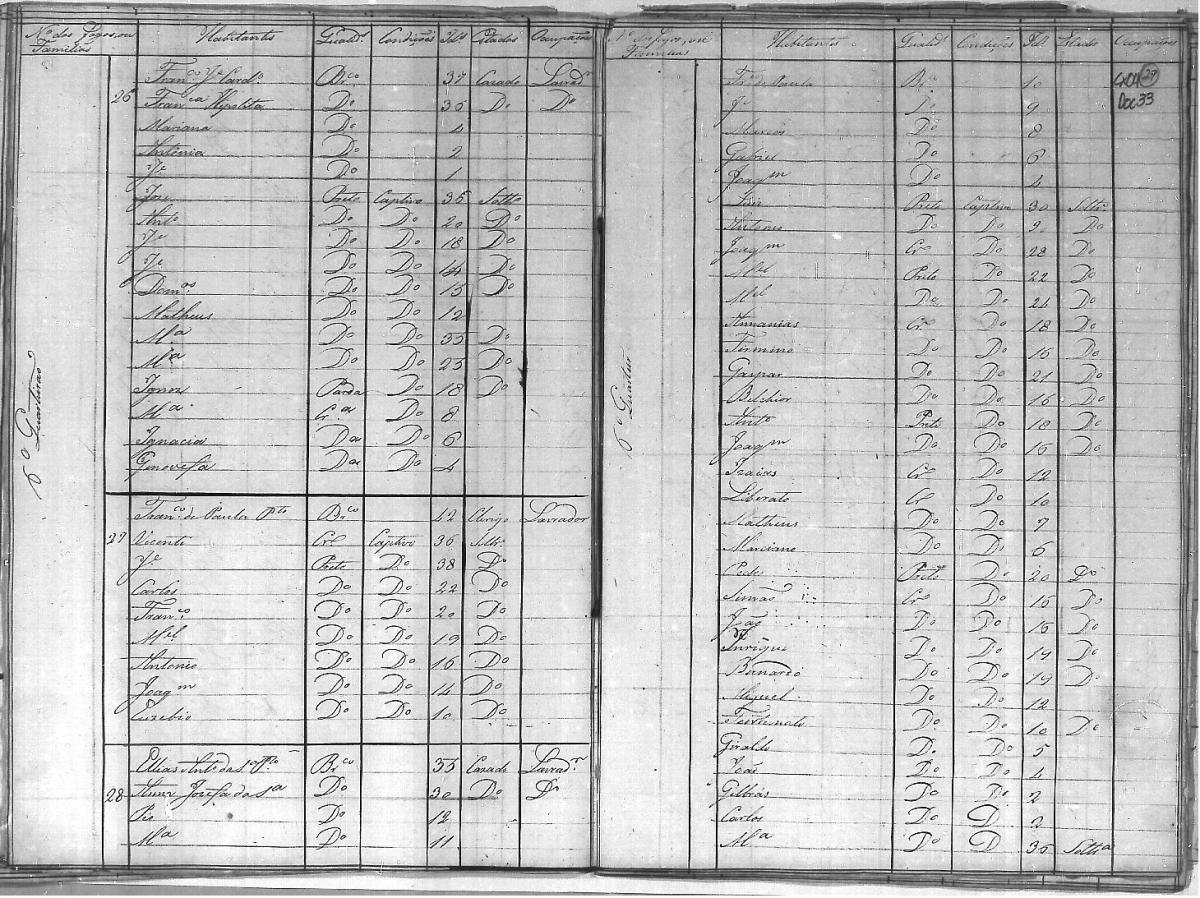 Nº dos Fogos, ou Familias Habitantes Qualid.s Condições Id.s Estados Ocupações
6º Quarteirão
Fran.co J.e Card.o Br.co 37 Casado Lavrad.r
26 Fran.ca Hipolita Dº 35 Dº Dº
Mariana Dº 4
Antonia Dº 2
J.e Dº 1
Jose Preto Captivo 35 Soltº
Ant.o Dº Dº 20 Dº
J.e Dº Dº 18 Dº
J.e Dº Dº 14 Dº
Dom.os Dº Dº 15 Dº
Matheus Dº Dº 12
M.a Dº Dº 35 Dº
M.a Dº Dº 25 Dº
Ignez Parda Dº 18 Dº
M.a Cr.a Dº 8
Ignacia Da Dº 6
Genovefa Da Dº 4
Fran.co de Paula Br.co 42 Clerigo Lavrador
27 Vicente Cr.o Captivo 36 Solt.o
J.e Preto Dº 38 Dº
Carlos Dº Dº 22 Dº
Fran.co Dº Dº 20 Dº
M.el Dº Dº 19 Dº
Antonio Dº Dº 16 Dº
Joaq.m Dº Dº 14 Dº
Euzebio Dº Dº 10 Dº
Elias Ant.o da S.a Br.co 35 Casado Lavrad.r
28 Anna Josefa da S.a Dº 30 Dº Dº
Pio Dº 12
M.a Dº 11
Nº dos Fogos, ou Familias Habitantes Qualid.s Condições Id.s Estado Ocupações
CxO1 29
Doc 33
6º Quarteirão
Fr.co de Paula Br.co 10
J.e Dº 9
Marcos Dº 8
Gabriel Dº 6
Joaq.m Dº 4
Preto Captivo 30 Solt.o
Antonio Dº Dº 9 Dº
Joaq.m Cr.o Dº 28 Dº
M.el Preto Dº 22 Dº
M.el Dº Dº 24 Dº
Ananias Cr.o Dº 18 Dº
Firmino Dº Dº 16 Dº
Gaspar Dº Dº 21 Dº
Belchior Dº Dº 16 Dº
Ant.o Preto Dº 18 Dº
Joaq.m Dº Dº 15 Dº
Izaias Cr.o Dº 12
Liberato Cr.o Dº 10
Matheus Dº Dº 7
Marciano Dº Dº 6
Preto Dº 20 Dº
Simão Cr.o Dº 16 Dº
João Dº Dº 15 Dº
Inrique Dº Dº 19 Dº
Bernardo Dº Dº 19 Dº
Miguel Dº Dº 12
Furtunato Dº Dº 10 Dº
Giraldo Dº Dº 5
João Dº Dº 4
Gilbras Dº Dº 2
Carlos Dº D 2
M.a Dº D 35 Solt.a